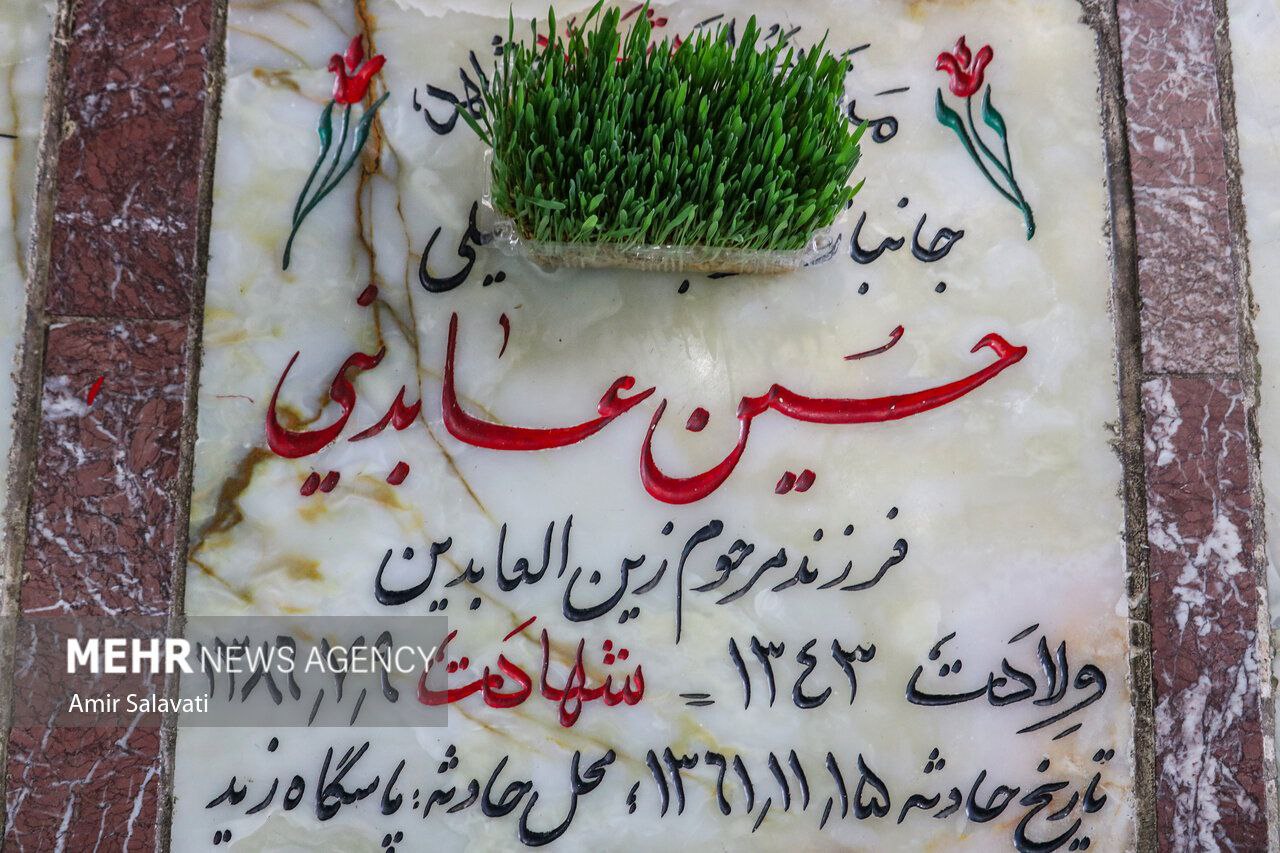 جانباز
حسین عابدینی
فرزند مرحوم زین العابدین
ولادت ۱۳۴۳ = شهادت
تاریخ حادثه ۱۳۶۱،۱۱،۱۵؛ محل حادثه: پاسگاه زید
MEHR NEWS AGENCY
Amir Salavati